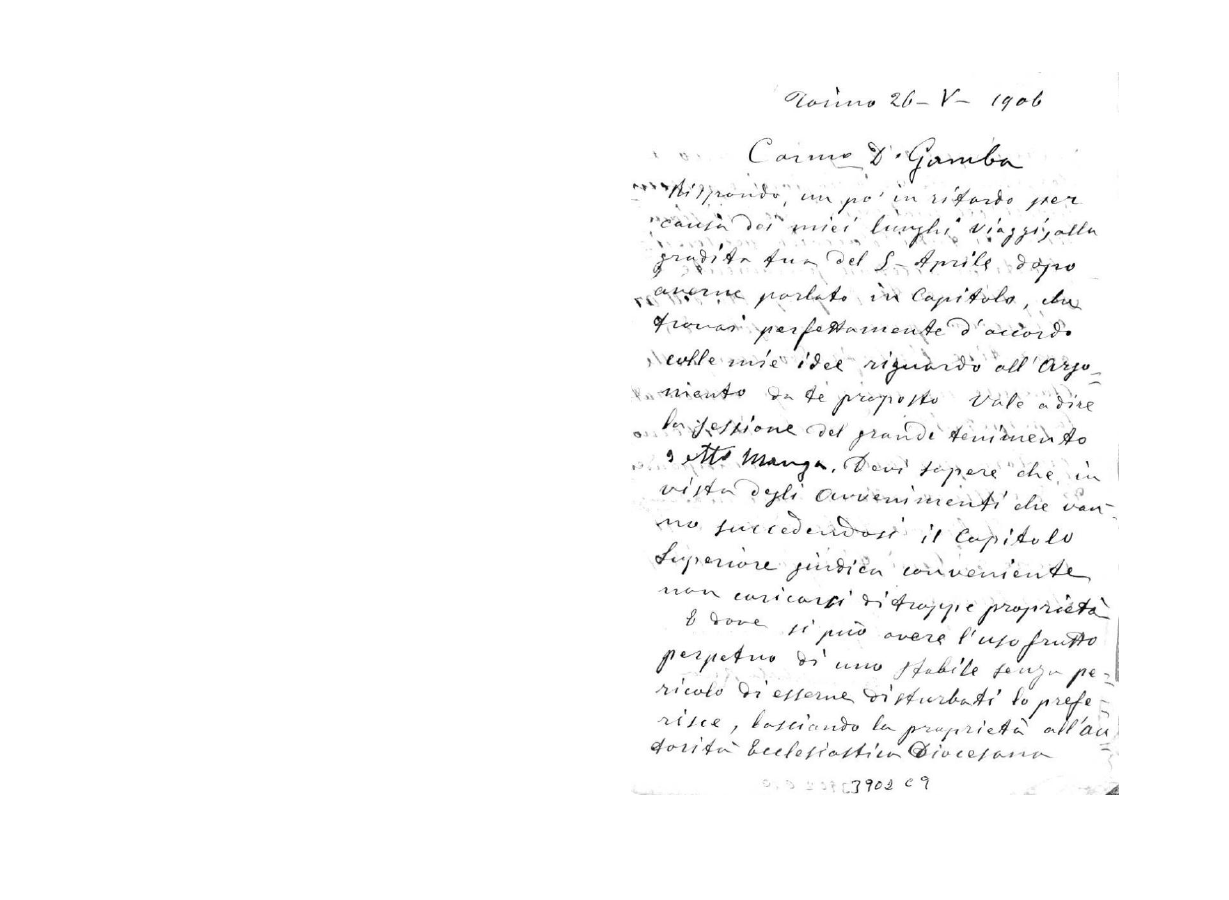 Torino 26 - V - 1906
Carmo D. Gamba
Rispondo, un po' in ritardo per
causa dei miei lunghi viaggi, alla
gradita tua del 5 - Aprile, dopo
averne parlato in Capitolo, che
trovasi perfettamente d'accordo
colle mie idee riguardo all'Argo-
mento da te proposto Vale a dire
la sessione del grande tenimento
detto Manga. Devi sapere che, in
vista degli avvenimenti che van-
no succedendosi il Capitolo
Superiore giudica conveniente
non caricarsi di troppe proprietà
E dove si può avere l'uso frutto
perpetuo di uno stabile senza pe-
ricolo di esserne disturbati lo prefe-
risce, lasciando la proprietà all'au-
torità Ecclesiastica Diocesana
3902 C9